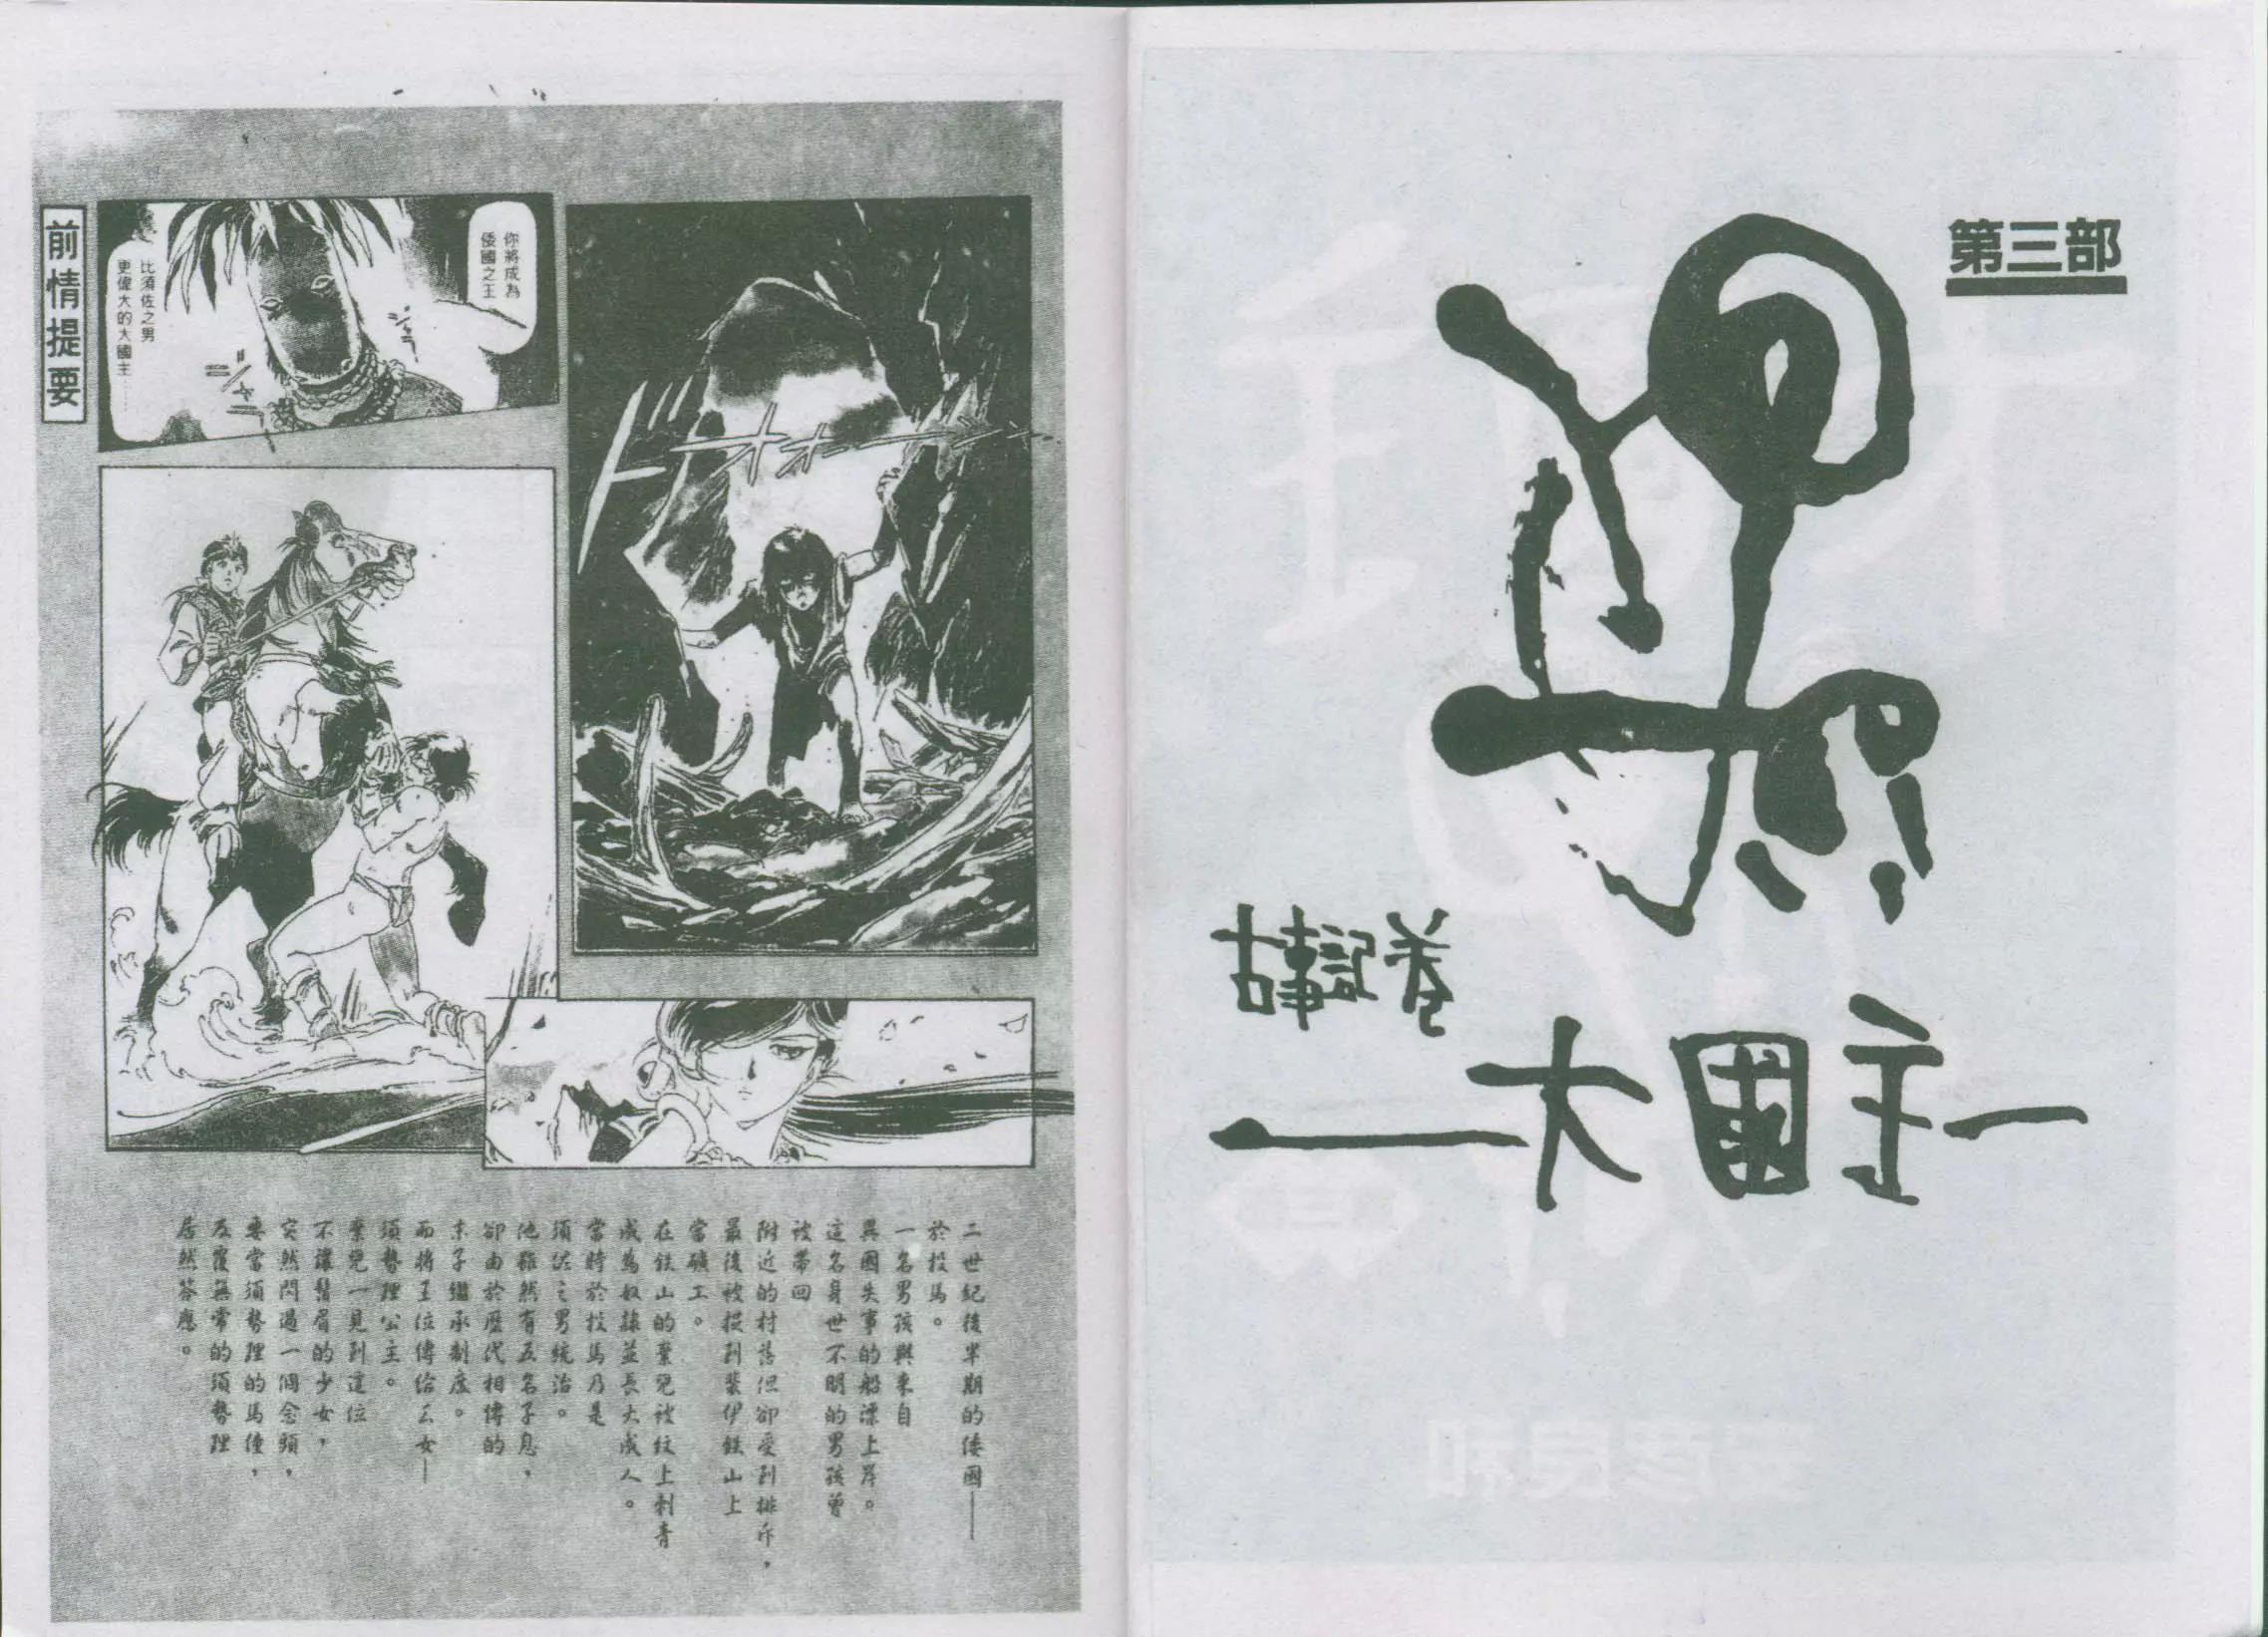 第三部
古事記巻
大國主
前情提要
你將成為
倭國之王
比須佐之男
更偉大的大國主……
ドオオー
二世紀後半期的倭國——
於投馬。
一名男孩與來自
異國失事的船漂上岸。
這名身世不明的男孩曾
被帶回
附近的村落但卻受到排斥，
最後被捉到裴伊鉄山上
當礦工。
在鉄山的棄兒被紋上刺青
成為奴隸並長大成人。
當時於投馬乃是
須佐之男統治。
他雖然有五名子息，
卻由於歷代相傳的
末子繼承制度。
而將王位傳給么女—
須勢理公主。
棄兒一見到這位
不讓鬚眉的少女，
突然閃過一個念頭，
要當須勢理的馬僮，
反覆無常的須勢理
居然答應。